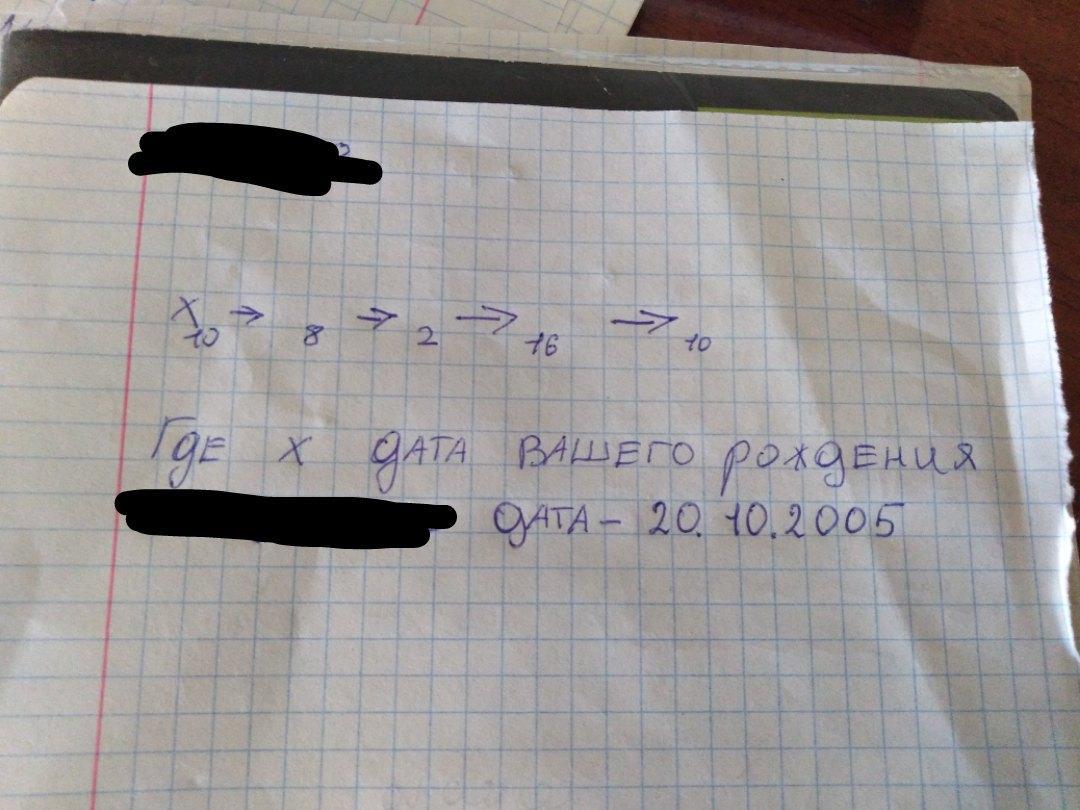 X₁₀ → ₈ → ₂ → ₁₆ → ₁₀
Где х дата вашего рождения
дата – 20.10.2005